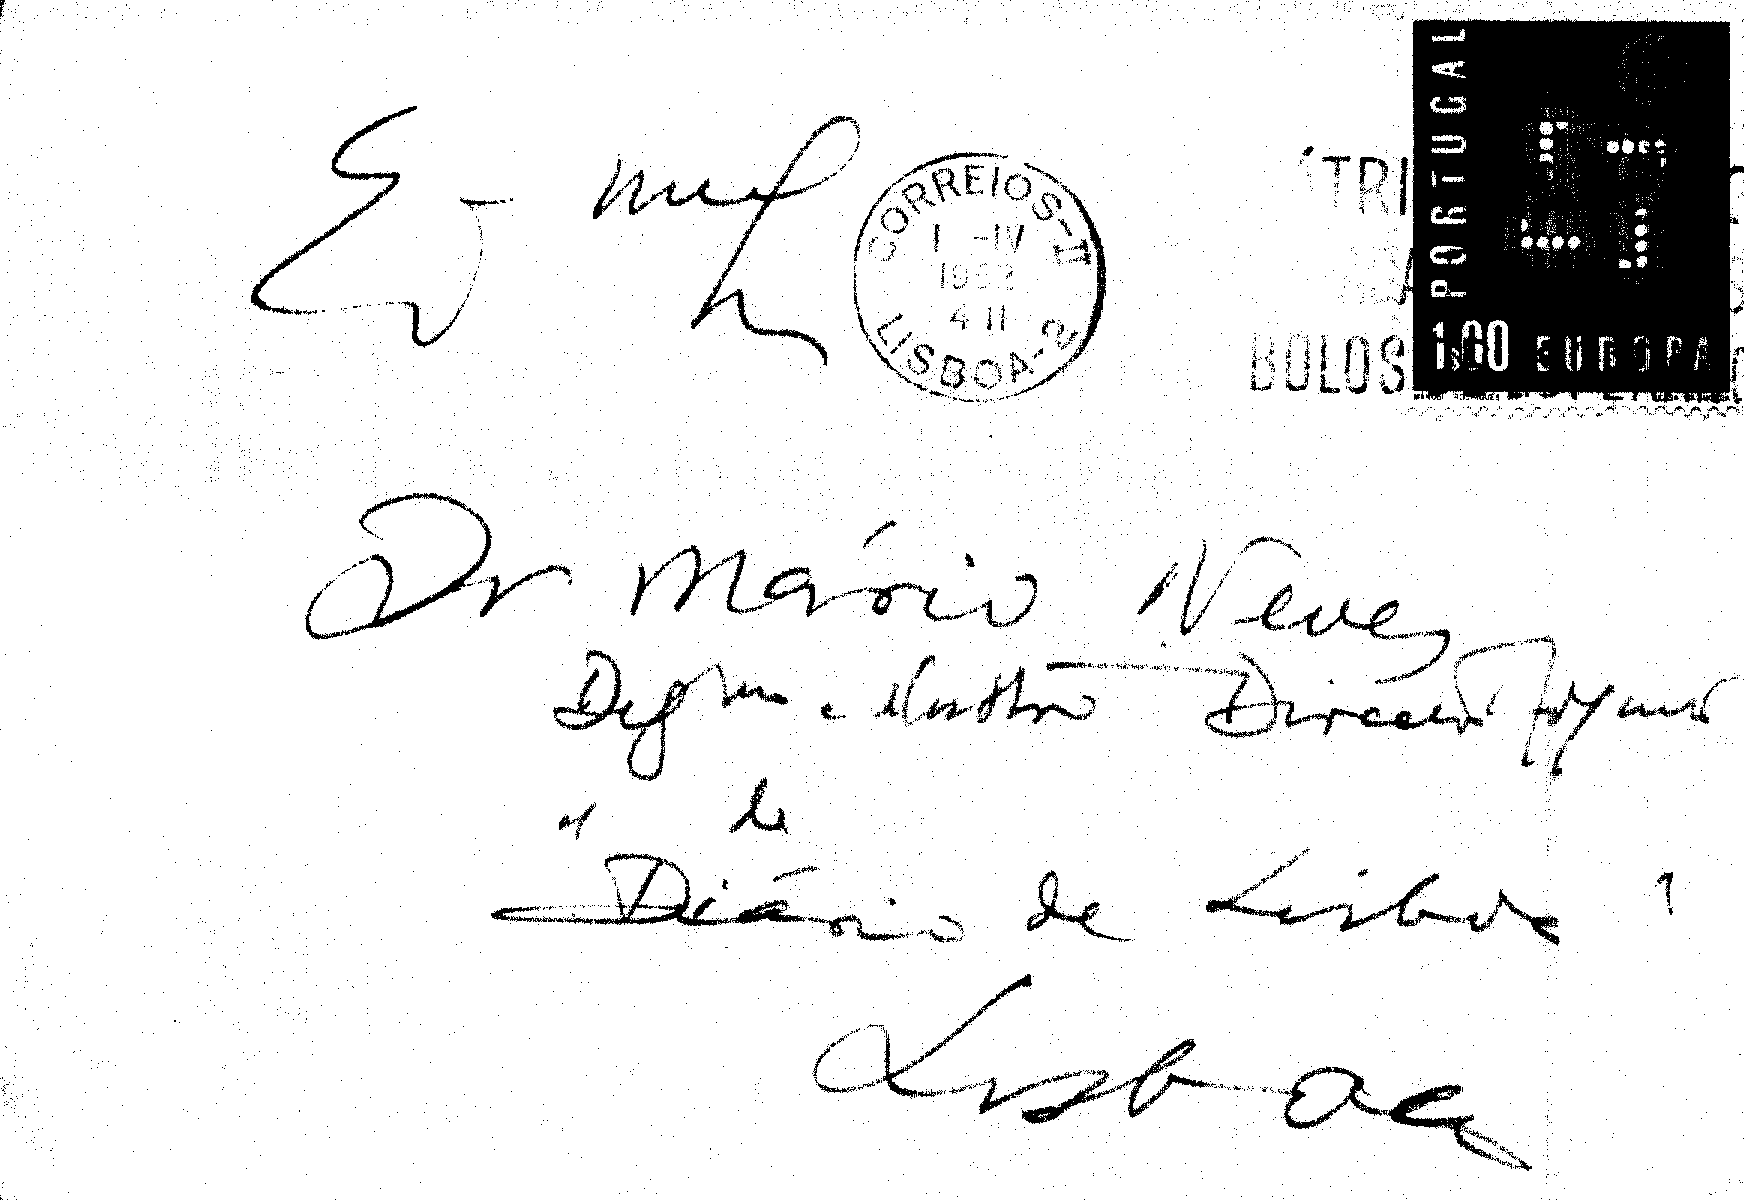 CORREIOS-II
1 -IV
4 11
LISBOA-2
TRI
BOLOS
PORTUGAL
1$00 EUROPA
Dr Mário Neves
Digmo e Ilustre Director Adjunto
de
Diário de Lisboa
Lisboa